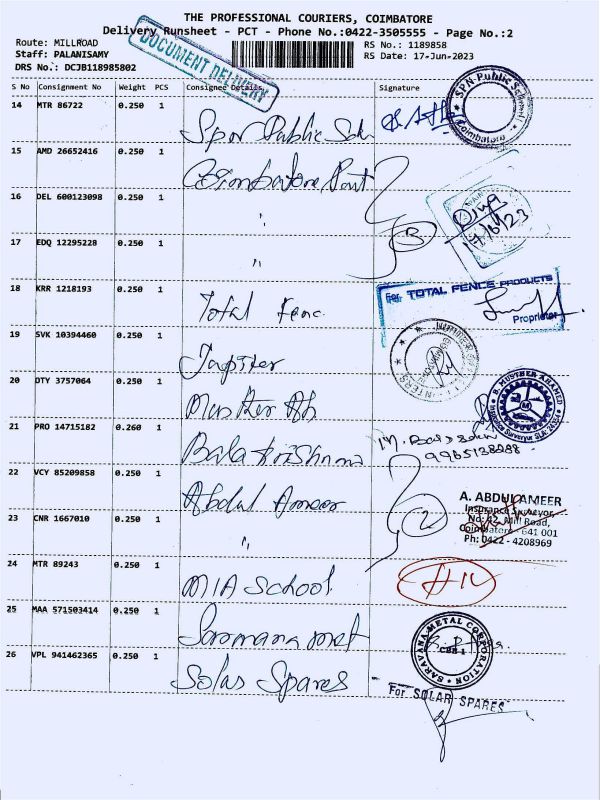 THE PROFESSIONAL COURIERS, COIMBATORE
Delivery Runsheet - PCT - Phone No.:0422-3505555 - Page No.:2
Route: MILLROAD
RS No.: 1189858
Staff: PALANISAMY
RS Date: 17-Jun-2023
DRS No.: DCJB118985802
DOCUMENT DELIVERY
S No Consignment No Weight PCS Consignee Details Signature
14 MTR 86722 0.250 1
Public
SPN Public School
Coimbatore
15 AMD 26652416 0.250 1
Coimbatore
16 DEL 600123098 0.250 1
"
17/6/23
17 EDQ 12295228 0.250 1
"
3
18 KRR 1218193 0.250 1
Total Fenc
For TOTAL FENCE PRODUCTS
Proprietor
19 SVK 10394460 0.250 1
Jupiter
20 DTY 3757064 0.250 1
Musther Ah
B. MUSTHER AHAMED
21 PRO 14715182 0.260 1
Bala Krishna
9965138288
22 VCY 85209858 0.250 1
Abdul Ameer
A. ABDUL AMEER
Insurance Surveyor,
No: 42, Mill Road,
Coimbatore - 641 001
Ph: 0422 - 4208969
23 CNR 1667010 0.250 1
"
2
24 MTR 89243 0.250 1
MIA School
25 MAA 571503414 0.250 1
Saravana Met
SARAVANA METAL CORPORATION
CBE-1
26 VPL 941462365 0.250 1
Solar Spares
For SOLAR SPARES